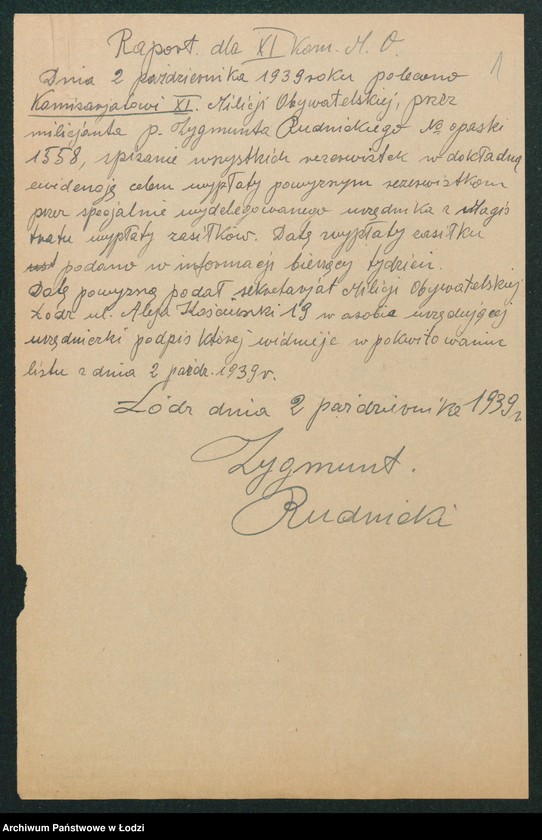 Raport. dla XI Kom. M. O.
1
Dnia 2 października 1939 roku polecono
Komisarjatowi XI. Milicji Obywatelskiej, przez
milicjanta p. Zygmunta Rudnickiego No opaski
1558, spisanie wszystkich rezerwistek w dokładną
ewidencję celem wypłaty powyższym rezerwistkom
przez specjalnie wydelegowanego urzędnika z Magis
tratu wypłaty zasiłków. Datę wypłaty zasiłku
podano w informacji bieżący tydzień.
Datę powyższą podał sekretarjat Milicji Obywatelskiej
Łódź ul. Aleja Kościuszki 19 w osobie urzędującej
urzędniczki podpis której widnieje w pokwitowaniu
listu z dnia 2 paźdz. 1939 r.
Łódź dnia 2 października 1939 r.
Zygmunt.
Rudnicki
Archiwum Państwowe w Łodzi